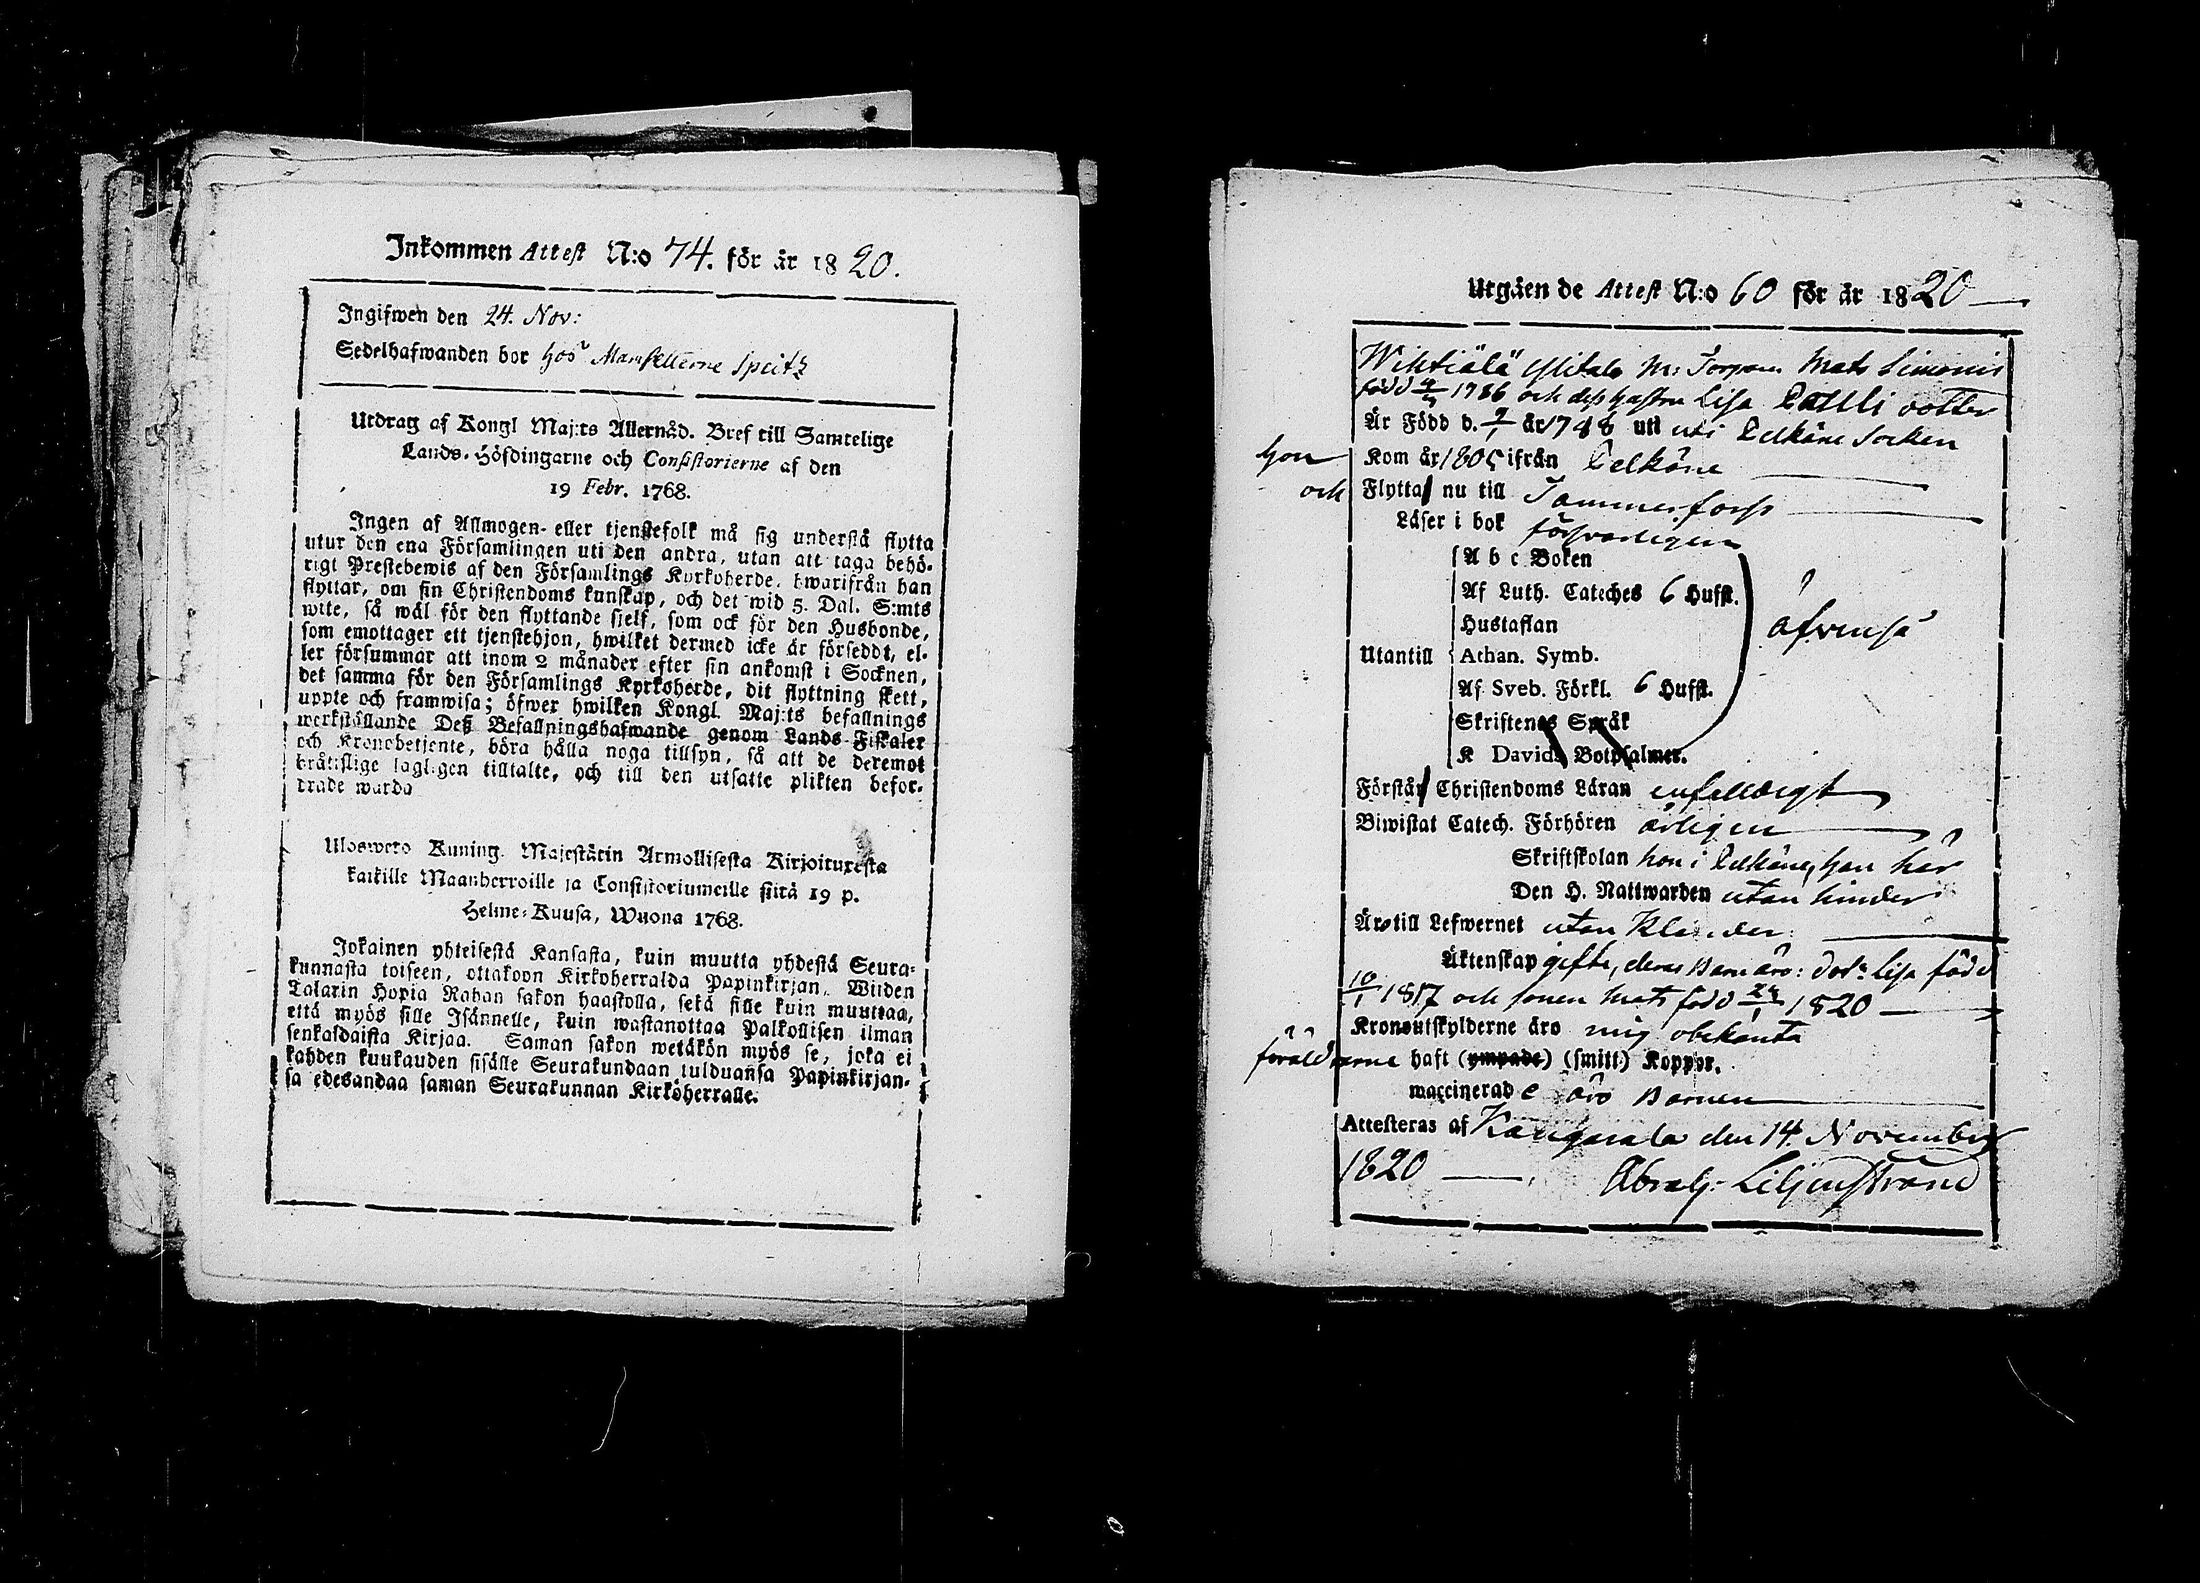 Inkommen Attest N:o 74. för år 1820.
Ingifwen den 24. Nov:
Sedelhafwanden bor hos Mamsellerne Speitz
Utdrag af Kongl Maj:ts Allernåd. Bref till Samtelige
Lands-Höfdingarne och Consistorierne af den
19 Febr. 1768.
Ingen af Allmogen- eller tjenstefolk må sig understå flytta
utur den ena Församlingen uti den andra, utan att taga behö-
rigt Prestebewis af den Församlings Kyrkoherde, hwarifrån han
flyttar, om sin Christendoms kunskap, och det wid 5. Dal. S:mts
wite, så wäl för den flyttande sjelf, som ock för den Husbonde,
som emottager ett tjenstehjon, hwilket dermed icke är försedt, el-
ler försummar att inom 2 månader efter sin ankomst i Socknen,
det samma för den Församlings Kyrkoherde, dit flyttning skett,
uppte och framwisa; öfwer hwilken Kongl. Maj:ts befallnings
werkställande Deß Befallningshafwande genom Lands-Fiskaler
och Kronobetjente, böra hålla noga tillsyn, så att de deremot
bråttslige lagligen tilltalte, och till den utsatte plikten befor-
drade warda
Uloswero Kuning. Majestätin Armollisesta Kirjoituxesta
kaikille Maanherroille ja Consistoriumeille siitä 19 p.
Helme-Kuusa, Wuona 1768.
Jokainen yhteisestä Kansasta, kuin muutta yhdestä Seura-
kunnasta toiseen, ottakoon Kirkoherralda Papinkirjan, Wiiden
Talarin Hopia Rahan sakon haastolla, sekä sille kuin muuttaa,
että myös sille Isännelle, kuin wastanottaa Palkollisen ilman
senkaldaista Kirjaa. Saman sakon wetäkön myös se, joka ei
kahden kuukauden sisälle Seurakundaan tulduansa Papinkirjan-
sa edesandaa saman Seurakunnan Kirkoherralle.
Utgåen de Attest N:o 60 för år 1820
Wihtiälä Ylitalo M: Torparn Mats Simonis
född 1786 och dess hustru Lisa Paulli dotter
Är Född d. år 1788 uti uti Pelkäne Socken
hon Kom år 1805 ifrån Pelkäne
och Flytta nu till Tammerfors
Läser i bok försvarligen
A b c Boken
Af Luth. Cateches 6 Hufst.
Hustaflan
Utantill Athan. Symb.
Af Sveb. Förkl. 6 Hufst.
Skriftenes Språk
K Davids Botpsalmer.
äfvenså
Förstår Christendoms Läran enfaldigt
Biwistat Catech. Förhören årligen
Skriftskolan hon i Pelkäne, han här
Den H. Nattwarden utan hinder
Äro till Lefwernet utan Klander
Äktenskap gifte, deras Barn äro: dotr Lisa född
10/1 1817 och sonen Mats född 1820
Kronoutskylderne äro mig obekanta
föräldrarne haft (ympade) (smitt) Koppor.
waccinerade äro Barnen
Attesteras af Kangasala den 14 November
1820 Abrah: Liljenstrand